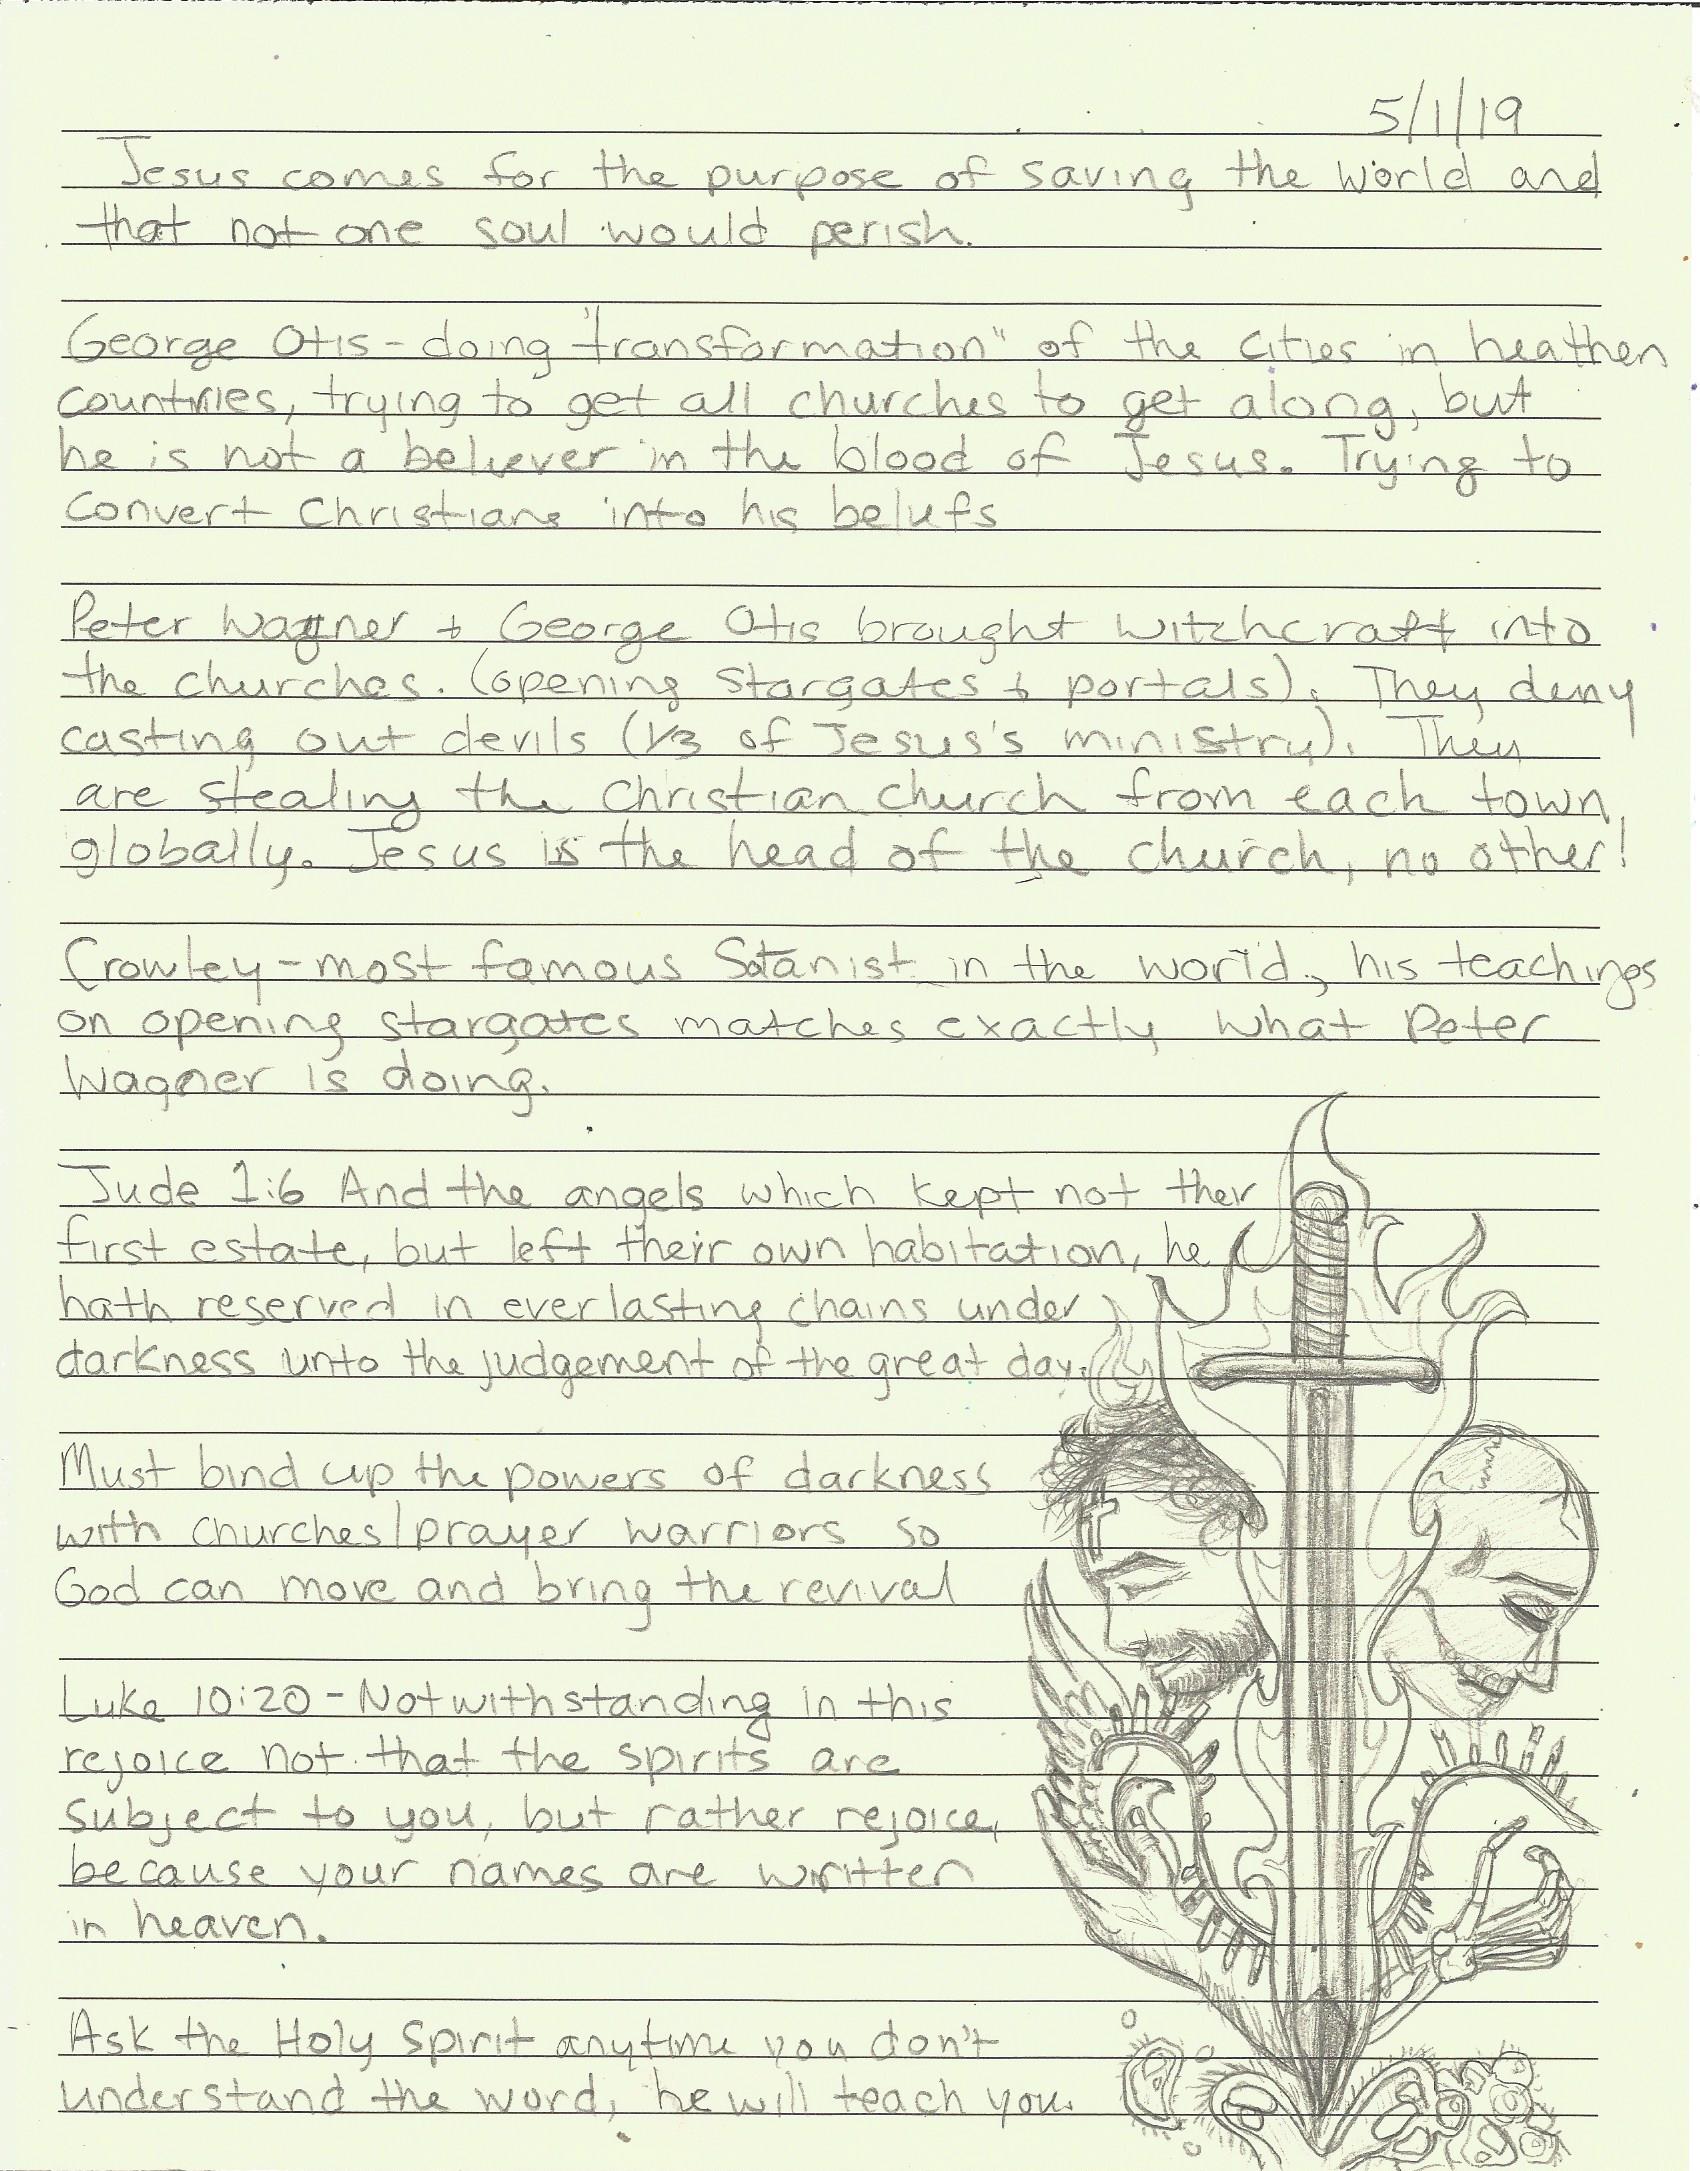 5/1/19
Jesus comes for the purpose of saving the world and
that not one soul would perish.
George Otis - doing "transformation" of the cities in heathen
countries, trying to get all churches to get along, but
he is not a believer in the blood of Jesus. Trying to
convert Christians into his beliefs
Peter Wagner + George Otis brought witchcraft into
the churches. (opening stargates + portals). They deny
casting out devils (1/3 of Jesus's ministry). They
are stealing the Christian church from each town
globally. Jesus is the head of the church, no other!
Crowley - most famous Satanist in the world, his teachings
on opening stargates matches exactly what Peter
Wagner is doing.
Jude 1:6 And the angels which kept not their
first estate, but left their own habitation, he
hath reserved in everlasting chains under
darkness unto the judgement of the great day.
Must bind up the powers of darkness
with churches/prayer warriors so
God can move and bring the revival
Luke 10:20 - Notwithstanding in this
rejoice not that the spirits are
subject to you, but rather rejoice,
because your names are written
in heaven.
Ask the Holy Spirit anytime you don't
understand the word, he will teach you.